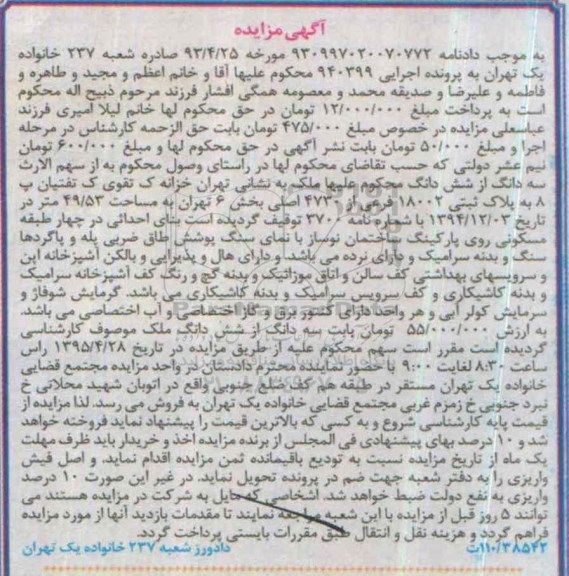 آگهی مزایده
به موجب دادنامه ۹۳۰۹۹۷۰۲۰۰۷۰۷۷۲ مورخه ۹۳/۴/۲۵ صادره شعبه ۲۳۷ خانواده
یک تهران به پرونده اجرایی ۹۴۰۳۹۹ محکوم علیها آقا و خانم اعظم و مجید و طاهره و
فاطمه و علیرضا و صدیقه محمد و معصومه همگی افشار فرزند مرحوم ذبیح اله محکوم
است به پرداخت مبلغ ۱۲/۰۰۰/۰۰۰ تومان در حق محکوم لها خانم لیلا امیری فرزند
عباسعلی مزایده در خصوص مبلغ ۴۷۵/۰۰۰ تومان بابت حق الزحمه کارشناس در مرحله
اجرا و مبلغ ۵۰/۰۰۰ تومان بابت نشر آگهی در حق محکوم لها و مبلغ ۶۰۰/۰۰۰ تومان
نیم عشر دولتی که حسب تقاضای محکوم لها در راستای وصول محکوم به از سهم الارث
سه دانگ از شش دانگ محکوم علیها ملک به نشانی تهران خزانه ک تقوی ک تفتیان پ
۸ به پلاک ثبتی ۱۸۰۰۲ فرعی از ۴۷۳۰ اصلی بخش ۶ تهران به مساحت ۴۹/۵۳ متر در
تاریخ ۱۳۹۴/۱۲/۰۳ با شماره نامه ۳۷۰۶ توقیف گردیده است بنای احداثی در چهار طبقه
مسکونی روی پارکینگ ساختمان نوساز با نمای سنگ پوشش طاق ضربی پله و پاگردها
سنگ و بدنه سرامیک و دارای نرده می باشد. و دارای هال و پذیرایی و بالکن آشپزخانه این
و سرویسهای بهداشتی کف سالن و اتاق موزائیک و بدنه گچ و رنگ کف آشپزخانه سرامیک
و بدنه کاشیکاری و کف سرویس سرامیک و بدنه کاشیکاری می باشد. گرمایش شوفاژ و
سرمایش کولر آبی و هر واحد دارای کنتور برق و گاز اختصاصی و آب اختصاصی می باشد.
به ارزش ۵۵/۰۰۰/۰۰۰ تومان بابت سه دانگ از شش دانگ ملک موصوف کارشناسی
گردیده است مقرر است سهم محکوم علیه از طریق مزایده در تاریخ ۱۳۹۵/۴/۲۸ راس
ساعت ۸:۳۰ لغایت ۹:۰۰ با حضور نماینده محترم دادستان در واحد مزایده مجتمع قضایی
خانواده یک تهران مستقر در طبقه هم کف ضلع جنوبی واقع در اتوبان شهید محلاتی خ
نبرد جنوبی خ زمزم غربی مجتمع قضایی خانواده یک تهران به فروش می رسد. لذا مزایده از
قیمت پایه کارشناسی شروع و به کسی که بالاترین قیمت را پیشنهاد نماید فروخته خواهد
شد و ۱۰ درصد بهای پیشنهادی فی المجلس از برنده مزایده اخذ و خریدار باید ظرف مهلت
یک ماه از تاریخ مزایده نسبت به تودیع باقیمانده ثمن مزایده اقدام نماید. و اصل فیش
واریزی را به دفتر شعبه جهت ضم در پرونده تحویل نماید. در غیر این صورت ۱۰ درصد
واریزی به نفع دولت ضبط خواهد شد. اشخاصی که مایل به شرکت در مزایده هستند می
توانند ۵ روز قبل از مزایده با این شعبه مراجعه نمایند تا مقدمات بازدید آنها از مورد مزایده
فراهم گردد و هزینه نقل و انتقال طبق مقررات بایستی پرداخت گردد.
۱۱۰/۳۸۵۴۲ت دادورز شعبه ۲۳۷ خانواده یک تهران